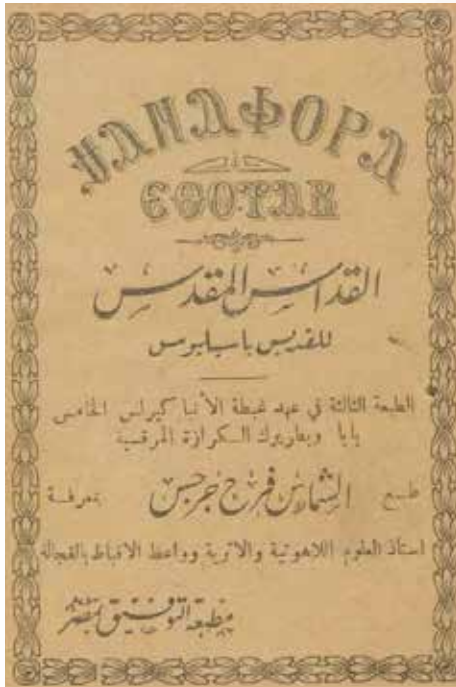 ϮⲀⲚⲀⲪⲞⲢⲀ
ⲈⲐⲞⲨⲀⲂ
القداس المقدس
للقديس باسيليوس
الطبعة الثالثة في عهد غبطة الأنبا كيرلس الخامس
بابا وبطريرك الكرازة المرقسية
طبع الشماس فرج جرجس بمعرفة
استاذ العلوم اللاهوتية والاثرية وواعظ الاقباط بالفجالة
مطبعة التوفيق بمصر